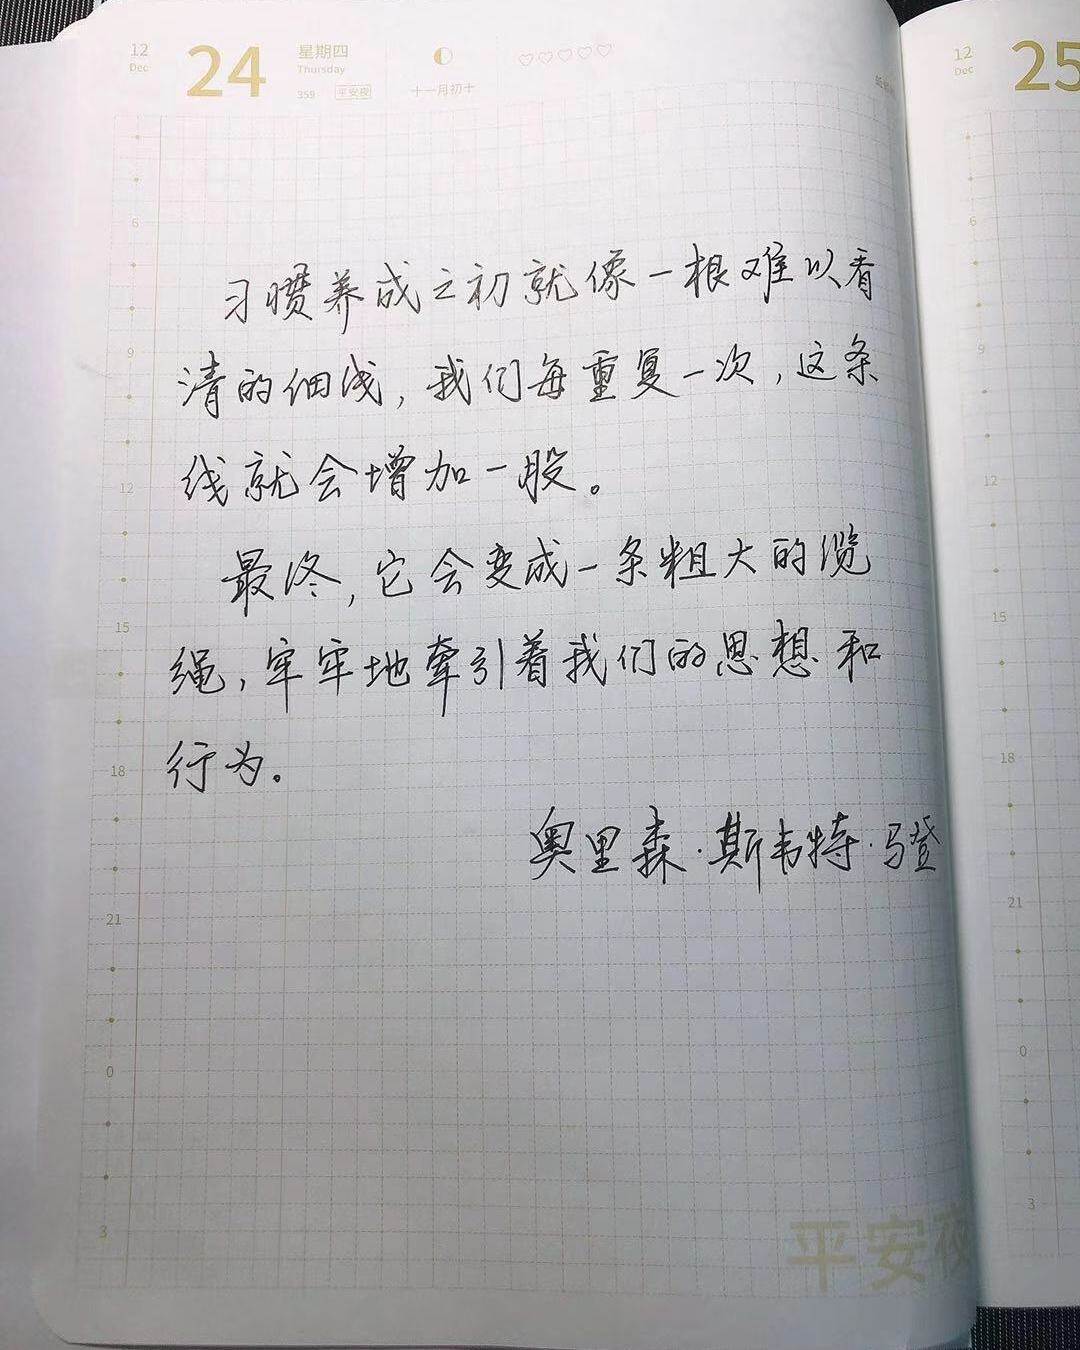 12
Dec
24
星期四
Thursday
359 平安夜
十一月初十
12
Dec
25
习惯养成之初就像一根难以看
清的细线，我们每重复一次，这条
线就会增加一股。
最终，它会变成一条粗大的缆
绳，牢牢地牵引着我们的思想和
行为。
奥里森·斯韦特·马登
6
9
12
15
18
21
0
3
平安夜
6
9
12
15
18
21
0
3